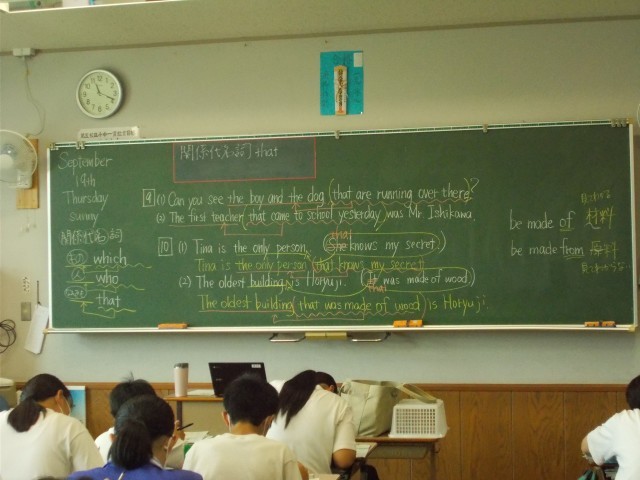 関係代名詞 that
September
19th
Thursday
sunny
関係代名詞
which
who
that
9 (1) Can you see the boy and the dog (that are running over there)?
(2) The first teacher (that came to school yesterday) was Mr. Ishikawa.
10 (1) Tina is the only person. She knows my secret.
that
Tina is the only person (that knows my secret)
(2) The oldest building is Horyuji. (It was made of wood.)
that
The oldest building (that was made of wood) is Horyuji.
be made of 材料
be made from 原料